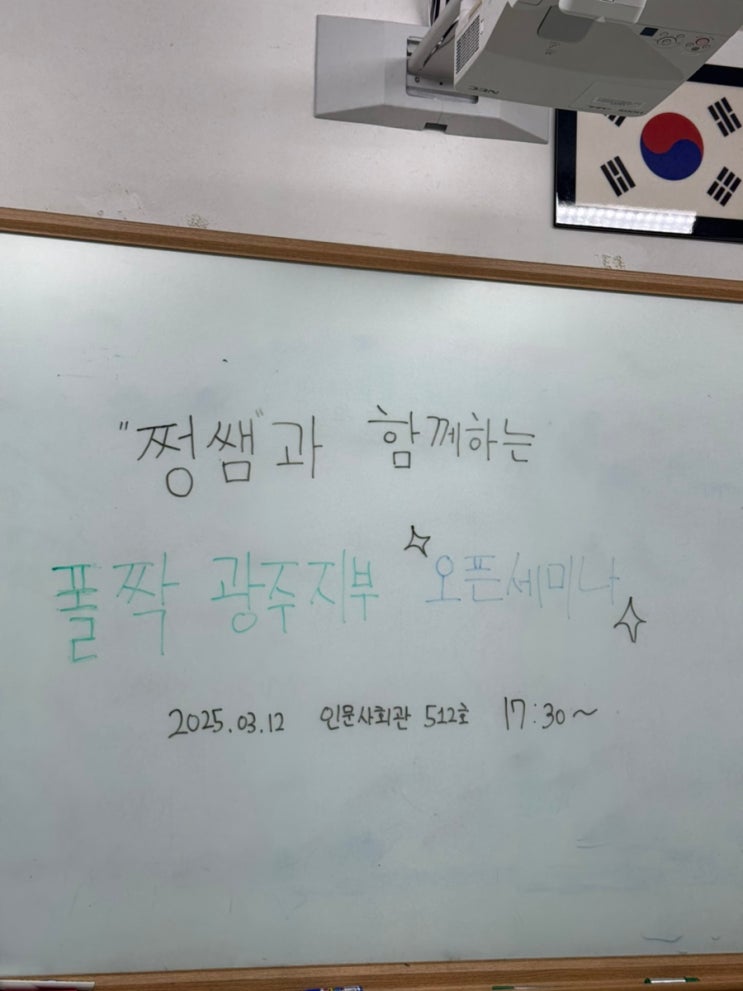 NEC
"쩡쌤"과 함께하는
폴짝 광주지부 오픈세미나
2025.03.12 인문사회관 512호 17:30~